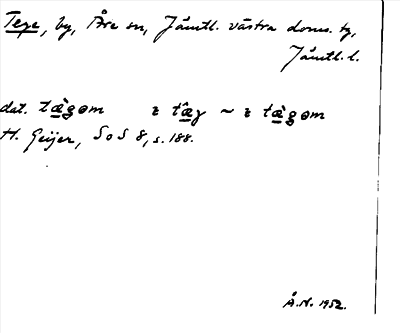 Tege, by, Åre sn, Jämtl. västra doms. tg,
Jämtl. l.
dat. tæ̀gom ɩ tæ̂g ~ ɩ tæ̀gom
H. Geijer, SoS 8, s. 188.
Å.N. 1952.